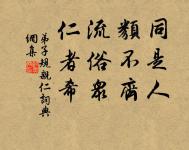 同是人
類不齊
流俗衆
仁者希
弟子規親仁詞典
網集